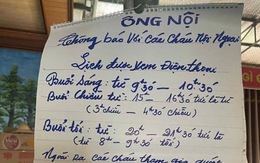 ÔNG NỘI
Thông báo Với Các Cháu Nội Ngoại
Lịch được xem Điện Thoại
Buổi Sáng: từ 9h30 – 10h30
Buổi Chiều: từ 15 – 16h30
(3h chiều – 4h30 chiều)
Buổi tối: từ 20h – 21h30 tối
(từ 8h – 9h30 tối)
Ngoài ra các cháu tham gia